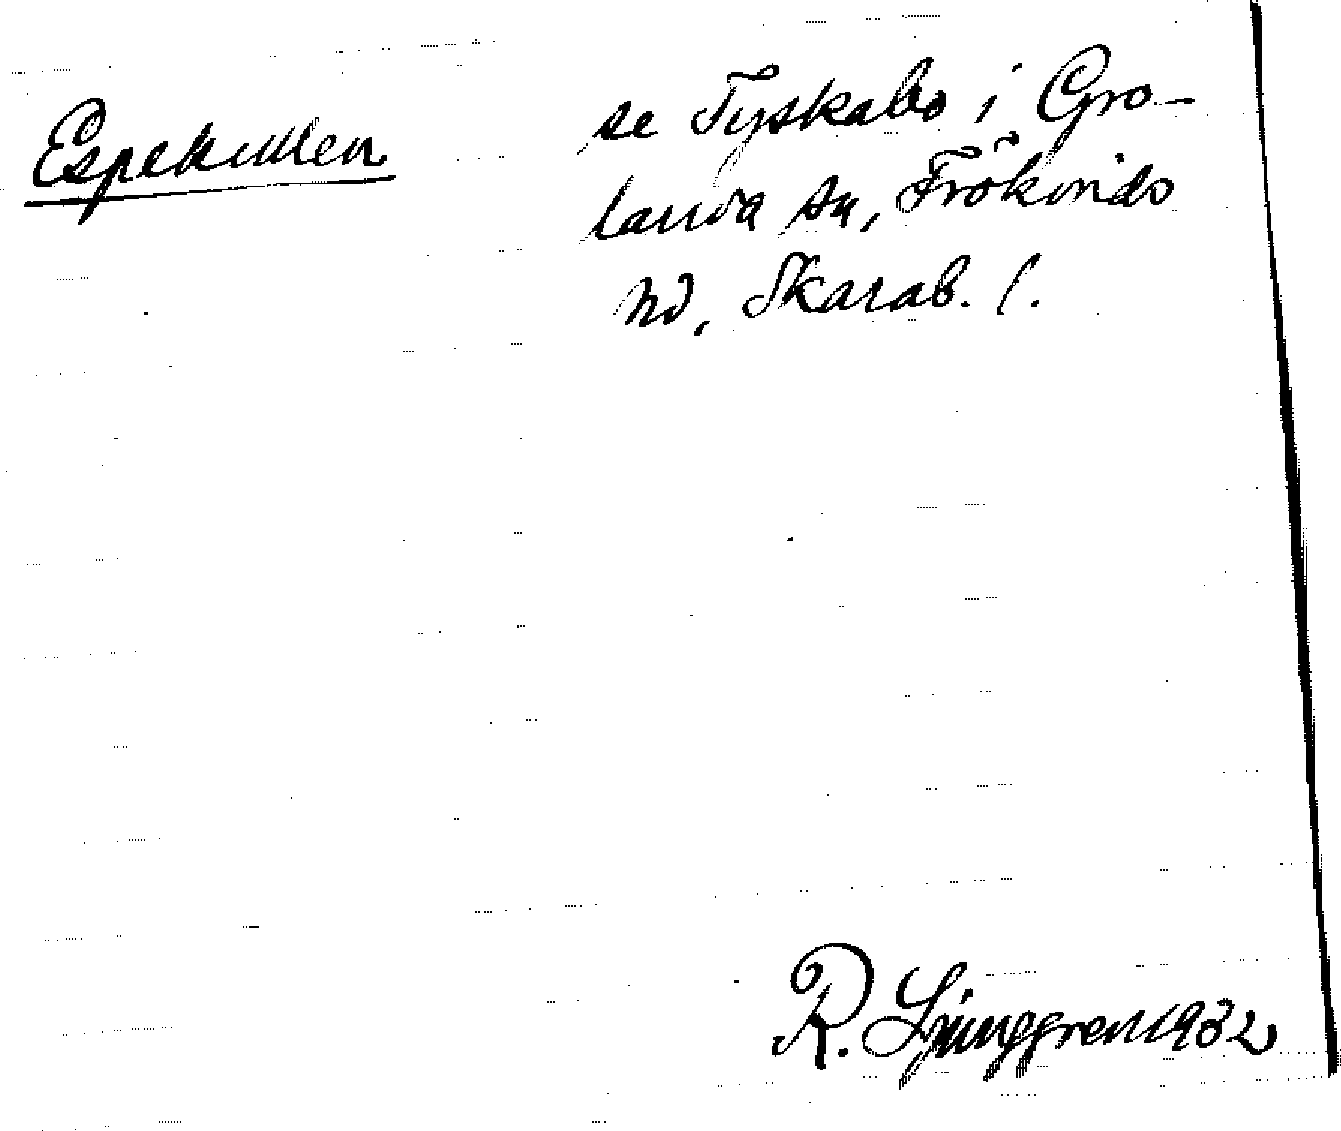 Espekullen
se Tyskabo i Gro-
landa sn, Frökinds
hd, Skarab. l.
R. Ljunggren 1932